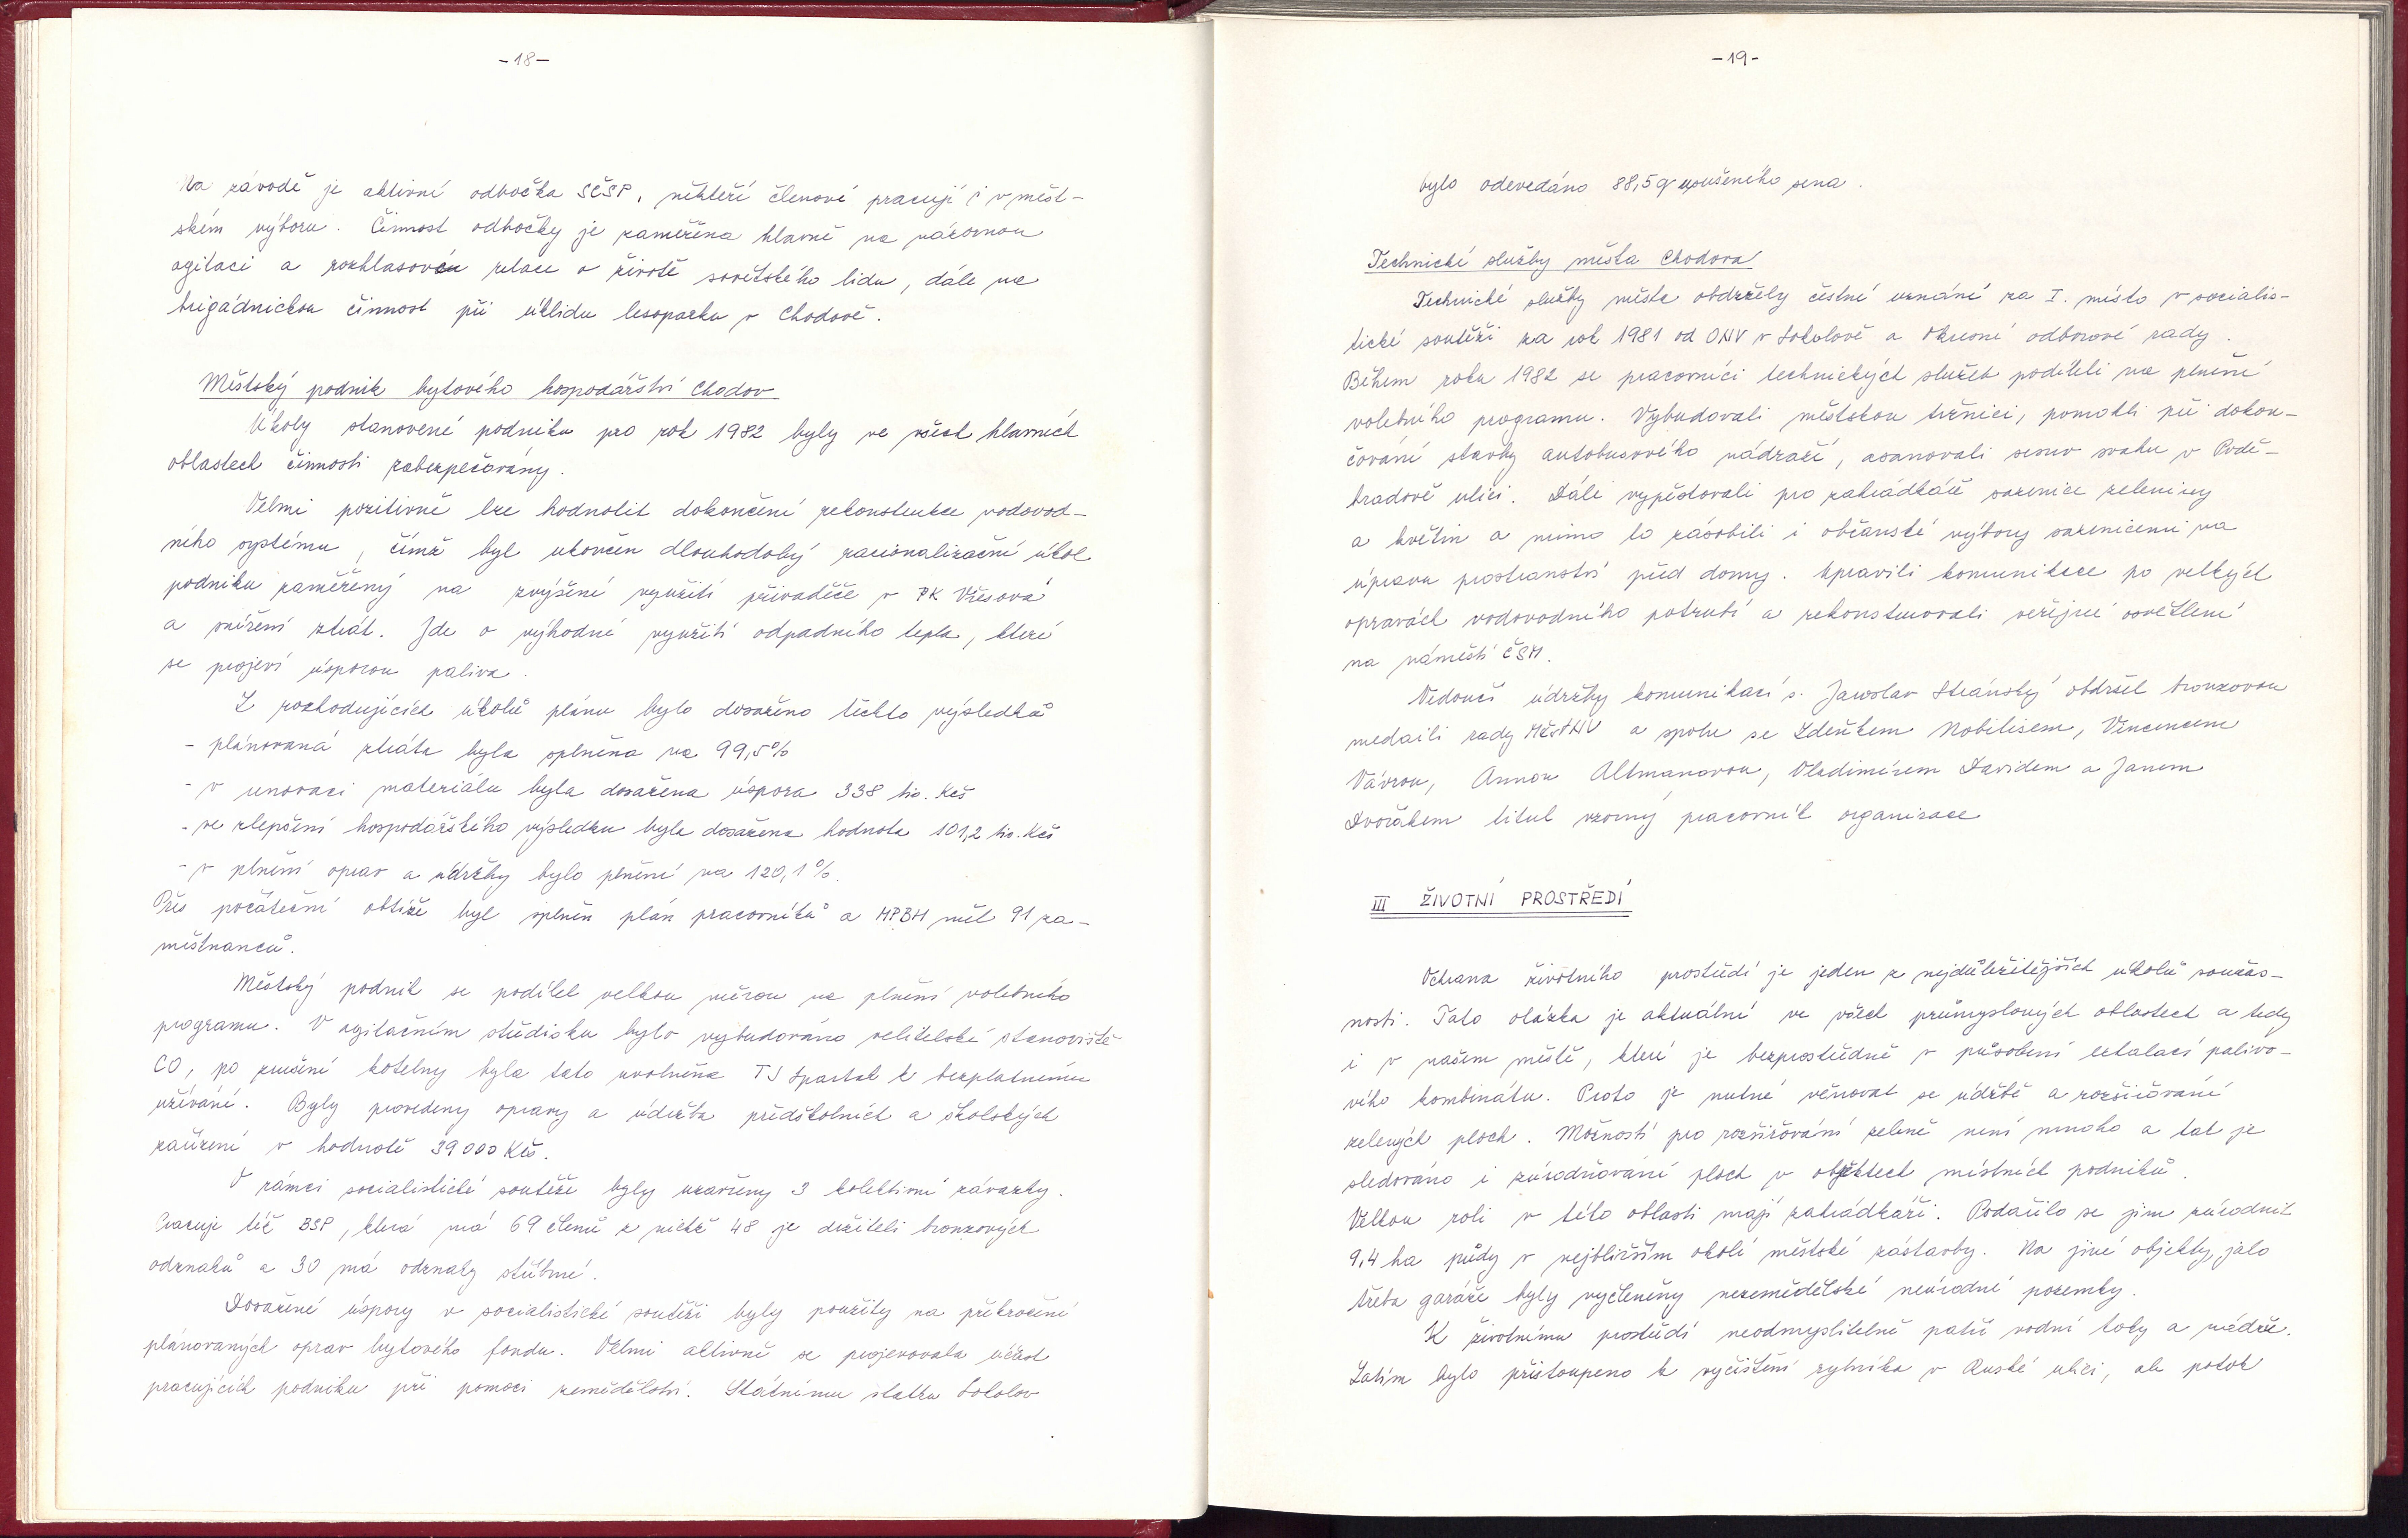 -18-
Na závodě je aktivní odbočka SČSP, někteří členové pracují i v měst-
ském výboru. Činnost odbočky je zaměřena hlavně na názornou
agitaci a rozhlasovou relaci o životě sovětského lidu, dále na
brigádnickou činnost při úklidu lesoparku v Chodově.
Městský podnik bytového hospodářství Chodov
Úkoly stanovené podniku pro rok 1982 byly ve všech hlavních
oblastech činnosti zabezpečovány.
Velmi pozitivně lze hodnotit dokončení rekonstrukce vodovod-
ního systému, čímž byl ukončen dlouhodobý racionalizační úkol
podniku zaměřený na zvýšení využití přivaděče v PK Vřesová
a snížení ztrát. Jde o výhodné využití odpadního tepla, které
se projeví úsporou paliva.
Z rozhodujících úkolů plánu bylo dosaženo těchto výsledků
- plánovaná ztráta byla splněna na 99,5%
- v inovaci materiálu byla dosažena úspora 338 tis. Kčs
- ve zlepšení hospodářského výsledku byla dosažena hodnota 101,2 tis. Kčs
- v plnění oprav a údržby bylo plnění na 120,1%.
Přes počáteční obtíže byl splněn plán pracovníků a MPBH měl 91 za-
městnanců.
Městský podnik se podílel velkou měrou na plnění volebního
programu. V agitačním středisku bylo vybudováno velitelské stanoviště
CO, po zrušení kotelny byla tato uvolněna TJ Spartak k bezplatnému
užívání. Byly provedeny opravy a údržba předškolních a školských
zařízení v hodnotě 39 000 Kčs.
V rámci socialistické soutěže byly uzavřeny 3 kolektivní závazky.
Pracuje též BSP, která má 69 členů z nichž 48 je držiteli bronzových
odznaků a 30 má odznaky stříbrné.
Dosažené úspory v socialistické soutěži byly použity na překročení
plánovaných oprav bytového fondu. Velmi aktivně se projevovala účast
pracujících podniku při pomoci zemědělství. Státnímu statku Sokolov
-19-
bylo odevzdáno 88,5 q usušeného sena.
Technické služby města Chodova
Technické služby města obdržely čestné uznání za I. místo v socialis-
tické soutěži za rok 1981 od ONV v Sokolově a Okresní odborové rady.
Během roku 1982 se pracovníci technických služeb podíleli na plnění
volebního programu. Vybudovali městskou tržnici, pomohli při dokon-
čování stavby autobusového nádraží, asanovali sesuv svahu v Podě-
bradově ulici. Dále vypěstovali pro zahrádkáře sazenice zeleniny
a květin a mimo to zásobili i občanské výbory sazenicemi na
úpravu prostranství před domy. Upravili komunikace po velkých
opravách vodovodního potrubí a rekonstruovali veřejné osvětlení
na náměstí ČSM.
Vedoucí údržby komunikací s. Jaroslav Stránský obdržel bronzovou
medaili rady MěstNV a spolu se Zdeňkem Nobilisem, Vincencem
Vávrou, Annou Altmanovou, Vladimírem Davidem a Janem
Dvořákem titul vzorný pracovník organizace
III ŽIVOTNÍ PROSTŘEDÍ
Ochrana životního prostředí je jeden z nejdůležitějších úkolů součas-
nosti. Tato otázka je aktuální ve všech průmyslových oblastech a tedy
i v našem městě, které je bezprostředně v působení exhalací palivo-
vého kombinátu. Proto je nutné věnovat se údržbě a rozšiřování
zelených ploch. Možností pro rozšiřování zeleně není mnoho a tak je
sledováno i zúrodňování ploch v objektech místních podniků.
Velkou roli v této oblasti mají zahrádkáři. Podařilo se jim zúrodnit
9,4 ha půdy v nejbližším okolí městské zástavby. Na jiné objekty, jako
třeba garáže byly vyčleněny nezemědělské neúrodné pozemky.
K životnímu prostředí neodmyslitelně patří vodní toky a nádrže.
Zatím bylo přistoupeno k vyčištění rybníka v Ruské ulici, ale potok